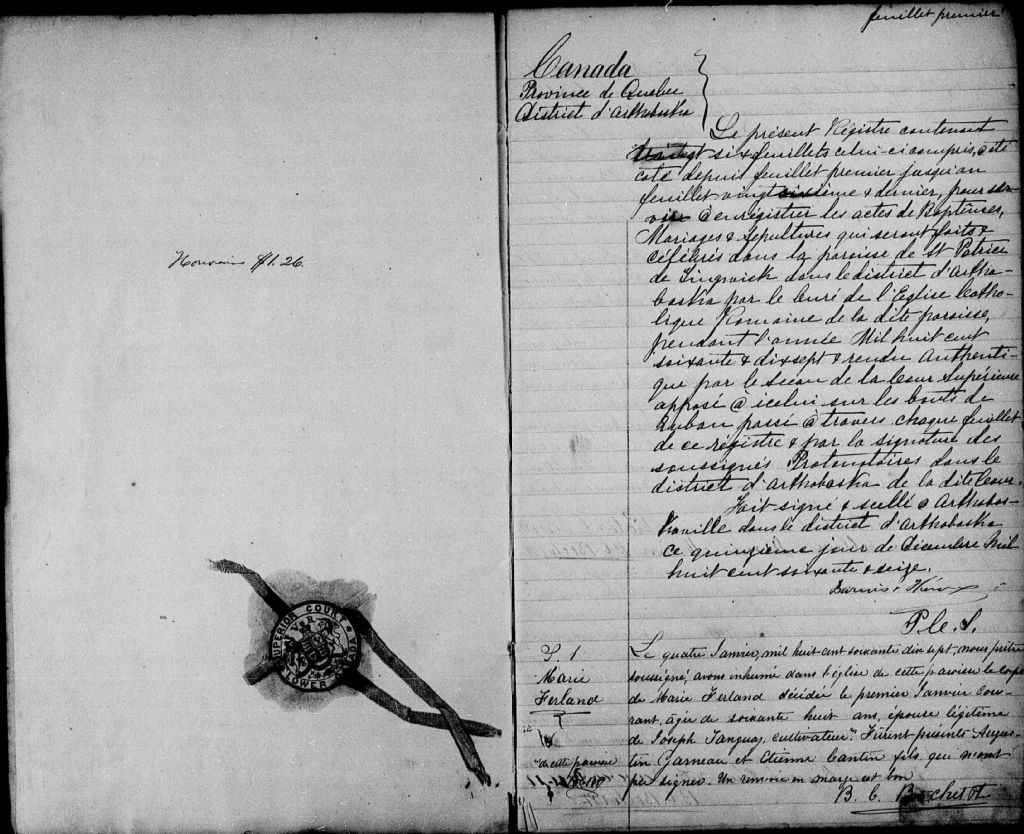 Nouvains fl. 26.
SUPERIOR COURT
LOWER
V R
feuillet premier
Canada
Province de Quebec
District d'Arthabaska
Le présent Régistre contenant
vingt six feuillets celui-ci compris, a été
coté depuis feuillet premier jusqu'au
feuillet vingt sixième & dernier, pour ser-
vir @ enrégistrer les actes de Baptêmes,
Mariages & Sépultures qui seront faits &
célébrés dans la paroisse de St Patrice
de Tingwick dans le district d'Artha-
baska par le Curé de l'Eglise Catho-
lique Romaine de la dite paroisse,
pendant l'année Mil huit cent
soixante & dixsept & rendu authenti-
que par le sceau de la Cour Supérieure
apposé @ icelui sur les bouts de
Ruban passé @ travers chaque feuillet
de ce régistre & par la signature des
soussignés Protonotaires dans le
district d'Arthabaska de la dite Cour.
Fait signé & scellé @ Arthabas-
kaville dans le district d'Arthabaska
ce quinzième jour de décembre Mil
huit cent soixante & seize.
P. C. S.
S. 1
Marie
Ferland
"de cette paroisse
Le quatre Janvier, mil huit-cent soixante dix sept, nous prêtre
soussigné, avons inhumé dans l'église de cette paroisse le corps
de Marie Ferland décédée le premier Janvier cou-
rant, âgée de soixante huit ans, épouse légitime
de Joseph Tanguay, cultivateur". Furent présents Augus-
tin Garneau et Etienne Cantin fils qui n'ont
pu signer. Un renvoi en marge est bon
B. C. Bochet